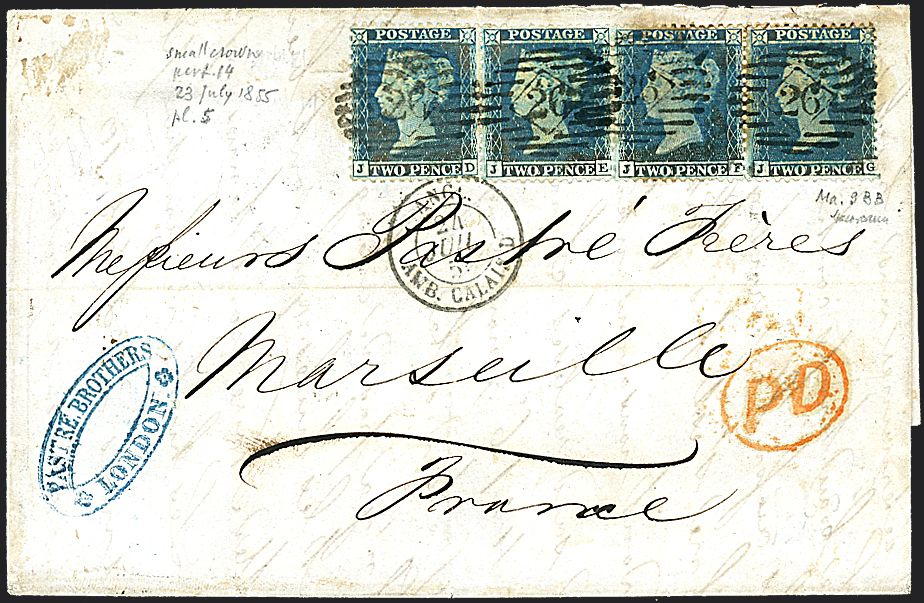 small crown
perf. 14
23 July 1855
pl. 5
POSTAGE POSTAGE POSTAGE POSTAGE
26 26 26 26
J TWO PENCE D J TWO PENCE E J TWO PENCE F J TWO PENCE G
ANGL.
JUIL
5
AMB. CALAIS D
Messieurs Pastré Frères
Marseille
France
PASTRE BROTHERS
LONDON
PD